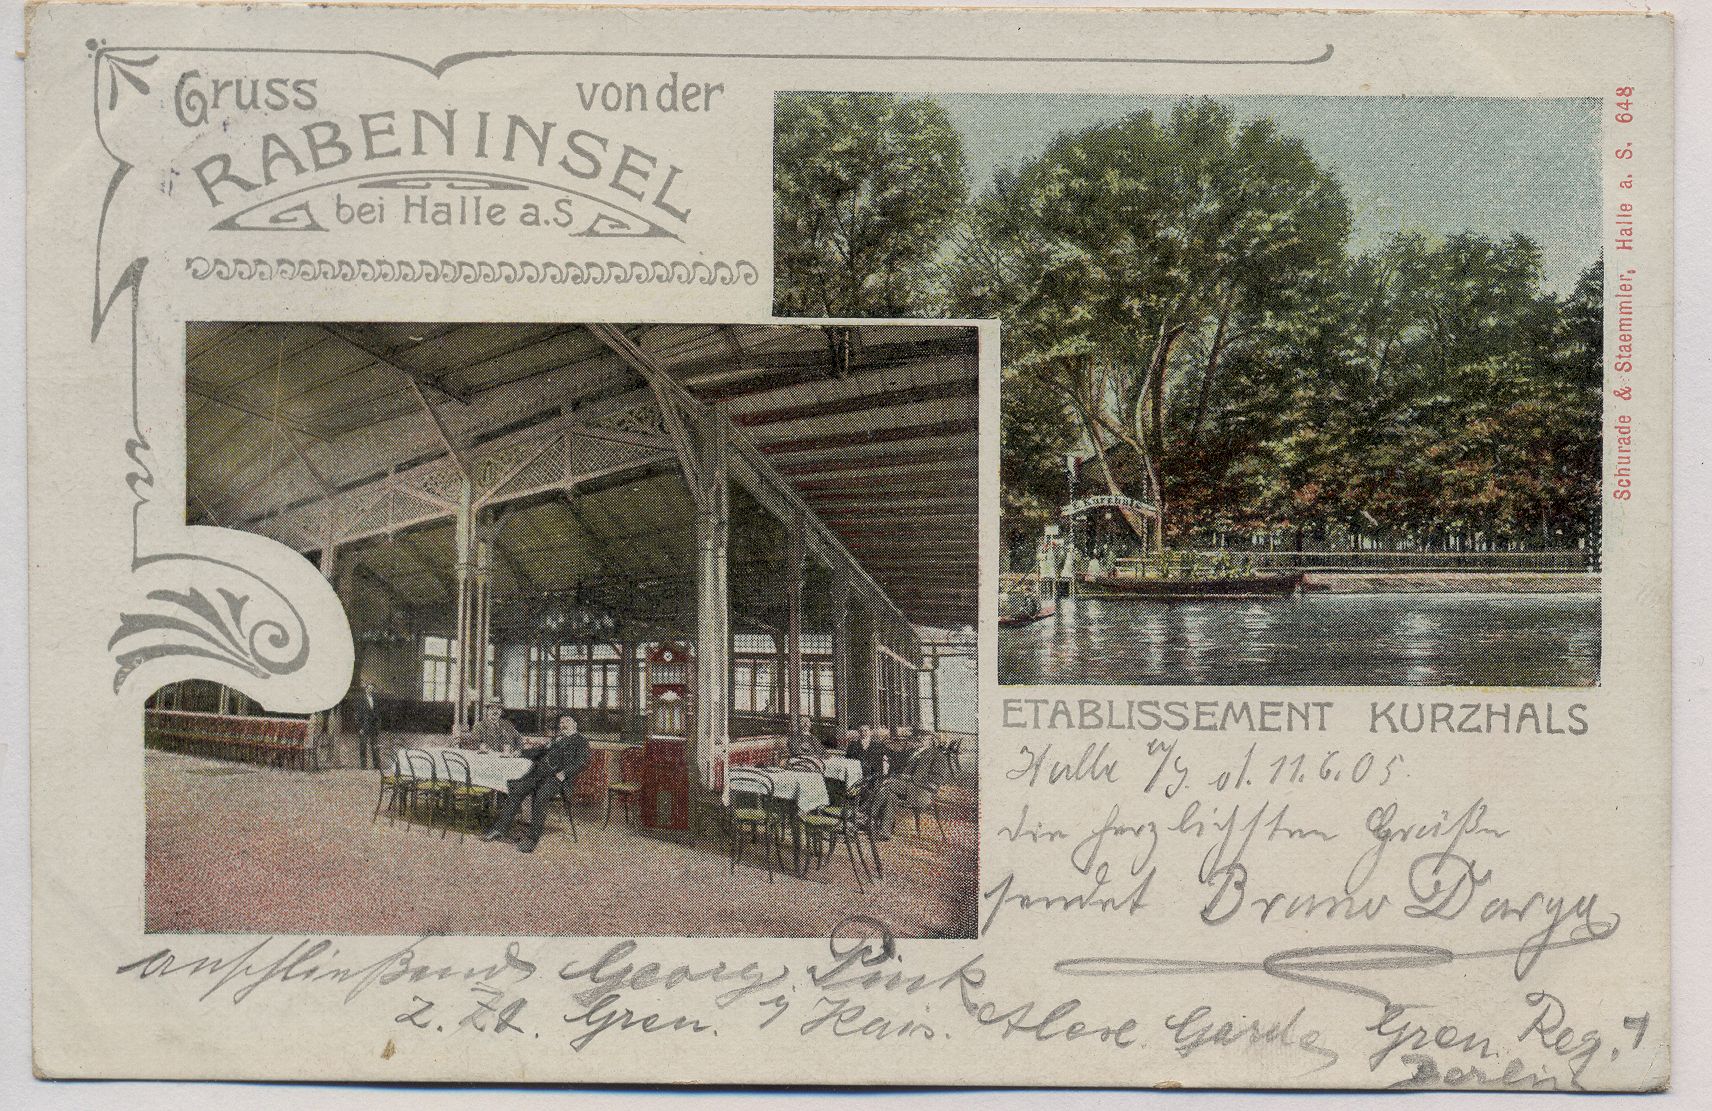 Gruss von der
RABENINSEL
bei Halle a.S
Schurade & Staemmler, Halle a. S. 648
Kurzhals
ETABLISSEMENT KURZHALS
Halle a/S. d. 11.6.05.
die herzlichsten Grüße
sendet Bruno Darga
anschließend Georg Pink
z. Zt. Gren. i/ Kais. Alex. Garde Gren. Reg. 1
Berlin